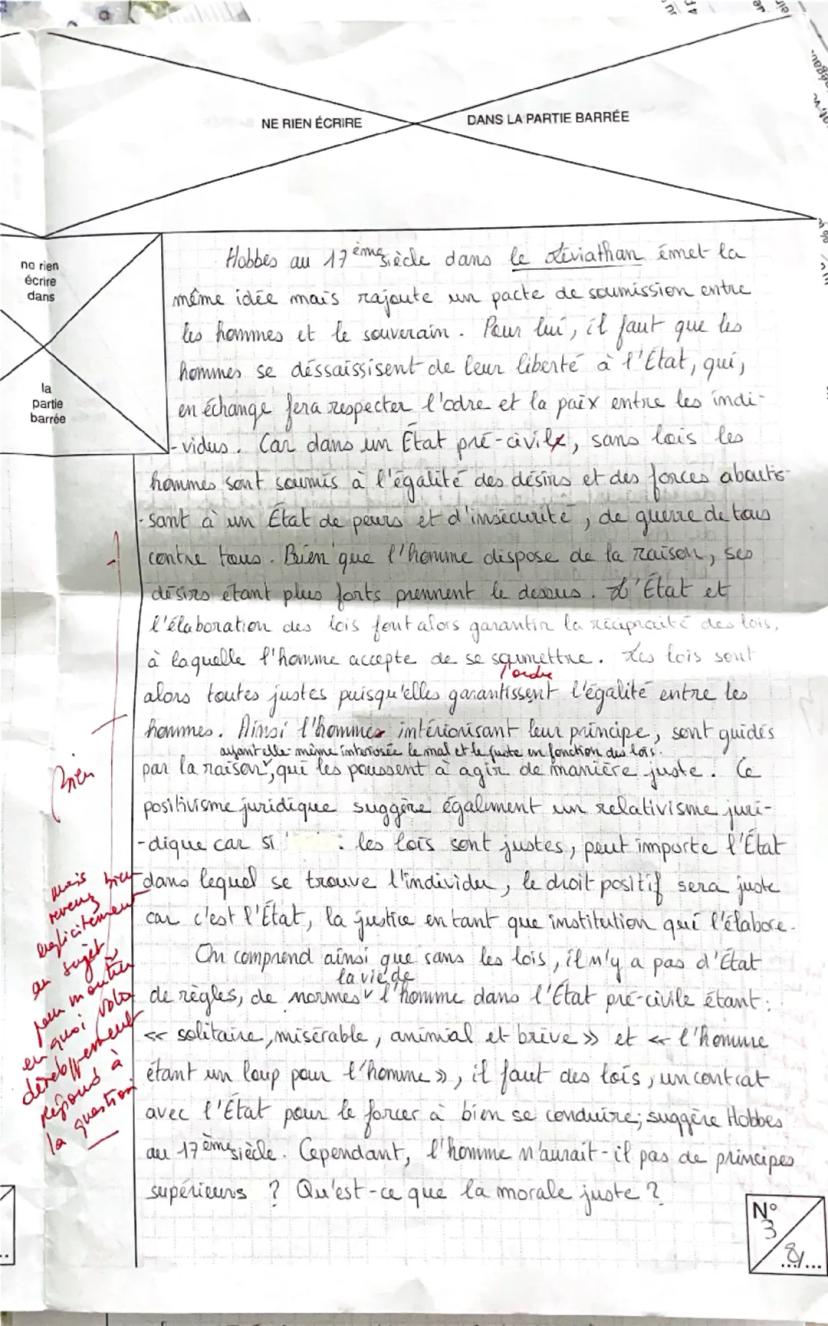 NE RIEN ÉCRIRE DANS LA PARTIE BARRÉE
ne rien
écrire
dans
la
partie
barrée
Hobbes au 17ème siècle dans le Léviathan émet la
même idée mais rajoute un pacte de soumission entre
les hommes et le souverain. Pour lui, il faut que les
hommes se déssaississent de leur liberté à l'État, qui,
en échange fera respecter l'odre et la paix entre les indi-
-vidus. Car dans un État pré-civil, sans lois les
hommes sont soumis à l'égalité des désirs et des forces aboutis-
-sant à un État de peurs et d'insécurité, de guerre de tous
contre tous. Bien que l'homme dispose de la raison, ses
désirs étant plus forts prennent le dessus. L'État et
l'élaboration des lois font alors garantir la réciprocité des lois,
à laquelle l'homme accepte de se soumettre. Les lois sont
l'ordre
alors toutes justes puisqu'elles garantissent l'égalité entre les
hommes. Ainsi l'hommes intériorisant leur principe, sont guidés
ayant elle-même intériosée le mal et le juste en fonction des lois.
par la raison, qui les poussent à agir de manière juste. Ce
positivisme juridique suggère également un relativisme juri-
-dique car si : les lois sont justes, peut importe l'État
dans lequel se trouve l'individu, le droit positif sera juste
car c'est l'État, la justice en tant que institution qui l'élabore.
Bien
mais
revenez bien
explicitement
au sujet
pour montrer
en quoi votre
développement
répond à
la question
On comprend ainsi que sans les lois, il n'y a pas d'État
la vie de
de règles, de normes l'homme dans l'État pré-civile étant :
« solitaire, misérable, animal et brève » et « l'homme
étant un loup pour l'homme », il faut des lois, un contrat
avec l'État pour le forcer à bien se conduire; suggère Hobbes
au 17ème siècle. Cependant, l'homme n'aurait-il pas de principes
supérieurs ? Qu'est-ce que la morale juste ?
N°
3
8/...